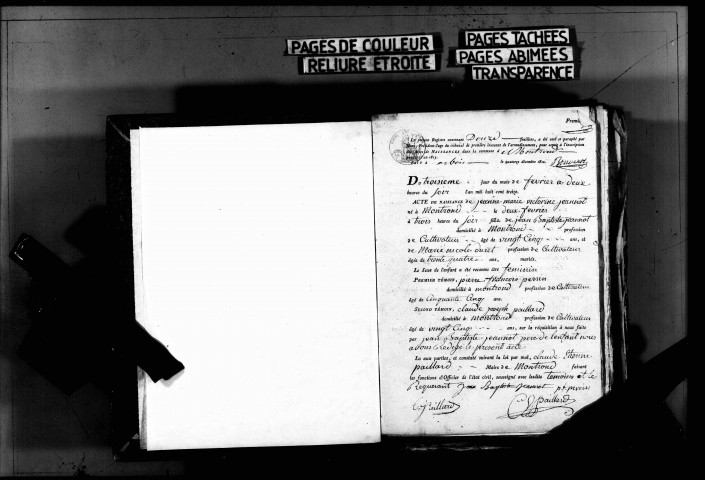 PAGES DE COULEUR
RELIURE ETROITE
PAGES TACHÉES
PAGES ABIMÉES
TRANSPARENCE
Premier
Le présent Registre contenant Douze feuillets, a été coté et paraphé par
Président-Juge du tribunal de première instance de l'arrondissement, pour servir à l'inscription
NAISSANCES dans la commune de Montrond
arbois le quatorze décembre
DU troisieme jour du mois de fevrier a deux
heures du soir l'an mil huit cent treize.
ACTE DE NAISSANCE de jeanne marie victorine jeannot
né à Montrond le deux fevrier
à trois heures du soir fille de jean Baptiste jeannot
domicilié à Montrond profession
de Cultivateur âgé de vingt Cinq ans, et
de Marie nicole profession de Cultivateur
âgée de trente quatre ans, mariés.
Le Sexe de l'enfant a été reconnu être feminin
PREMIER TÉMOIN, pierre francois perrin
domicilié à montrond profession de Cultivateur
âgé de Cinquante Cinq ans.
SECOND TÉMOIN, claude joseph paillard
domicilié à montrond profession de Cultivateur
âgé de vingt Cinq ans, sur la réquisition à nous faite
par jean Baptiste jeannot pere de l'enfant nous
avons Redigé le present acte
Lu aux parties, et constaté suivant la loi par moi, claude Etienne
paillard Maire de Montrond faisant
les fonctions d'Officier de l'état civil, soussigné avec lesdits temoins et le
Requerant Jean Baptiste Jeannot p f perrin
C J paillard
C E paillard